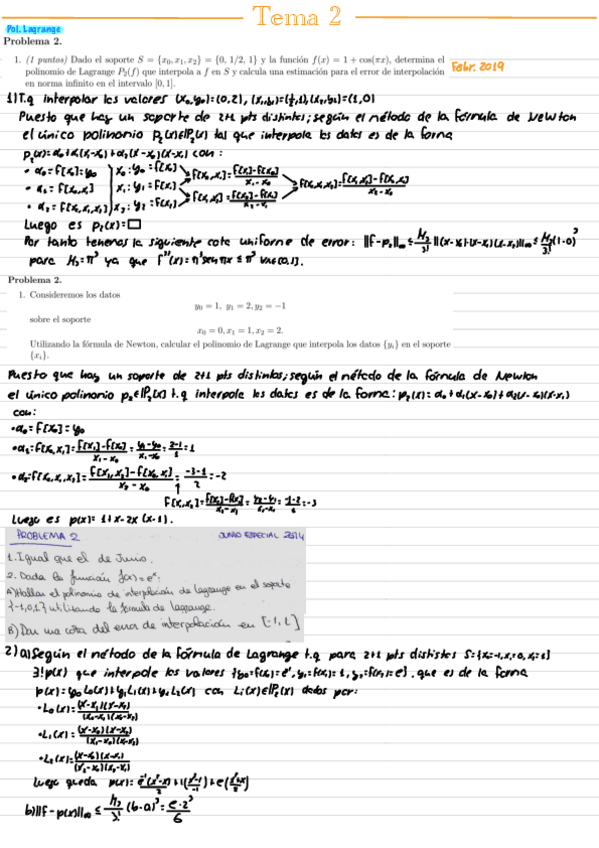 Tema 2
Pol. Lagrange
Problema 2.
1. (1 puntos) Dado el soporte S = {x₀, x₁, x₂} = {0, 1/2, 1} y la función f(x) = 1 + cos(πx), determina el
polinomio de Lagrange P₂(f) que interpola a f en S y calcula una estimación para el error de interpolación
en norma infinito en el intervalo [0, 1].
Febr. 2019
1) T.q interpolar los valores (x₀,y₀)=(0,2), (x₁,y₁)=(½,1), (x₂,y₂)=(1,0)
Puesto que hay un soporte de 2+1 pts distintos; según el método de la fórmula de Newton
el único polinomio p₂(x)∈P₂(x) tal que interpola los datos es de la forma
p₂(x)=α₀+α₁(x-x₀)+α₂(x-x₀)(x-x₁) con:
• α₀=f[x₀]=y₀ x₀: y₀=f[x₀]
• α₁=f[x₀,x₁] x₁: y₁=f[x₁]
• α₂=f[x₀,x₁,x₂] x₂: y₂=f[x₂]
Luego es p₂(x)=□
Por tanto tenemos la siguiente cota uniforme de error: ||f-p₂||∞ ≤
para M₃=π³ ya que f'''(x)=π³sen πx ≤ π³ ∀x∈[0,1].
Problema 2.
1. Consideremos los datos
y₀ = 1, y₁ = 2, y₂ = −1
sobre el soporte
x₀ = 0, x₁ = 1, x₂ = 2.
Utilizando la fórmula de Newton, calcular el polinomio de Lagrange que interpola los datos {yᵢ} en el soporte
{xᵢ}.
Puesto que hay un soporte de 2+1 pts distintos; según el método de la fórmula de Newton
el único polinomio p₂∈P₂[x] t.q interpola los datos es de la forma: p₂(x)=α₀+α₁(x-x₀)+α₂(x-x₀)(x-x₁)
con:
• α₀=f[x₀]=y₀
• α₁=f[x₀,x₁]=(f[x₁]-f[x₀])/(x₁-x₀)=(y₁-y₀)/(x₁-x₀)=(2-1)/1=1
• α₂=f[x₀,x₁,x₂]=(f[x₁,x₂]-f[x₀,x₁])/(x₂-x₀)=(-3-1)/2=-2
Luego es p(x)=1+x-2x(x-1).
PROBLEMA 2 JUNIO ESPECIAL 2014
1. Igual que el de Junio.
2. Dada la función f(x)=eˣ:
A) Hallar el polinomio de interpolación de Lagrange en el soporte
{-1,0,1} utilizando la fórmula de Lagrange.
B) Dar una cota del error de interpolación en [-1,1]
2) a) Según el método de la fórmula de Lagrange t.q para 2+1 pts distintos
∃! p(x) que interpole los valores que es de la forma
p(x)=y₀L₀(x)+y₁L₁(x)+y₂L₂(x) con Lᵢ(x)∈P₂[x] dados por:
• L₀(x)=((x-x₁)(x-x₂))/((x₀-x₁)(x₀-x₂))
• L₁(x)=((x-x₀)(x-x₂))/((x₁-x₀)(x₁-x₂))
• L₂(x)=((x-x₀)(x-x₁))/((x₂-x₀)(x₂-x₁))
Luego queda p(x)=
b) ||f-p(x)||∞ ≤ M₃/3! (b-a)³=(e·2³)/6